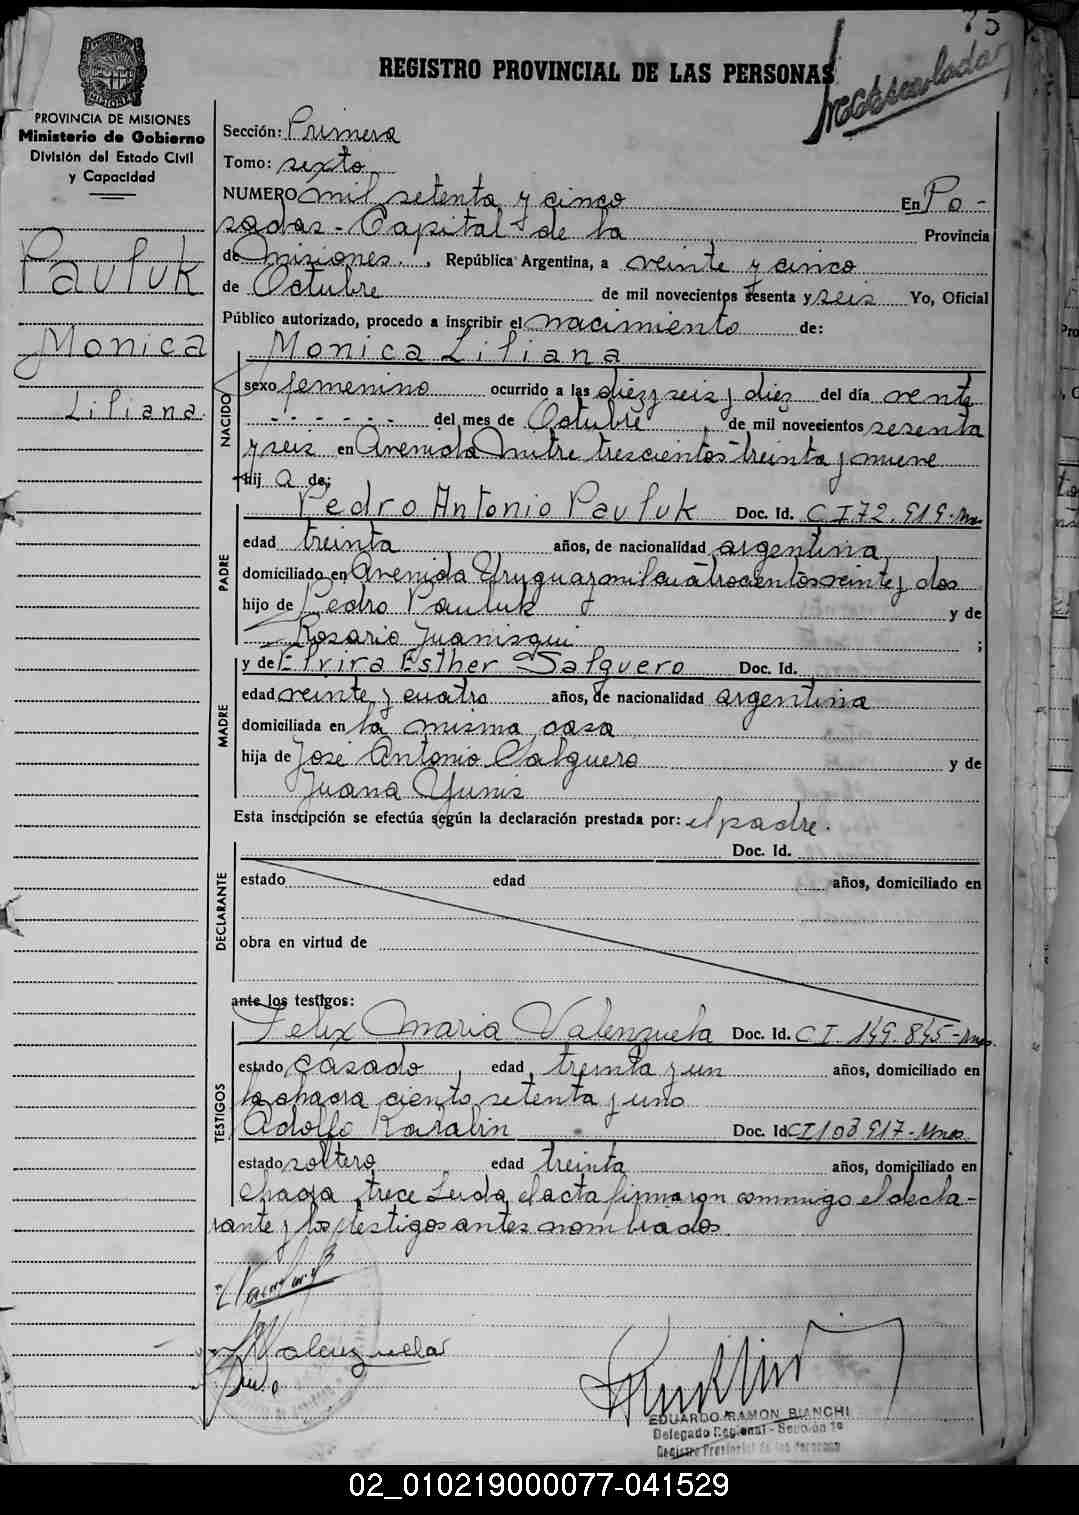 75
Matriculada
REGISTRO PROVINCIAL DE LAS PERSONAS
PROVINCIA DE MISIONES
Ministerio de Gobierno
División del Estado Civil
y Capacidad
Pauluk
Monica
Liliana
Sección: Primera
Tomo: sexto
NUMERO mil setenta y cinco En Po-
sadas - Capital de la Provincia
de Misiones, República Argentina, a veinte y cinco
de Octubre de mil novecientos sesenta y seis Yo, Oficial
Público autorizado, procedo a inscribir el nacimiento de:
Monica Liliana
NACIDO
sexo femenino ocurrido a las diez y seis y diez del día veinte
- - - - - - del mes de Octubre de mil novecientos sesenta
y seis en Avenida Mitre trescientos treinta y nueve
hij a de;
Pedro Antonio Pauluk Doc. Id. C I. 72.919-Mnes
PADRE
edad treinta años, de nacionalidad argentina
domiciliado en Avenida Uruguay mil cuatrocientos veinte y dos
hijo de Pedro Pauluk y de
Rosario Juanisqui ;
y de Elvira Esther Salguero Doc. Id.
MADRE
edad veinte y cuatro años, de nacionalidad argentina
domiciliada en la misma casa
hija de José Antonio Salguero y de
Juana Yunis
Esta inscripción se efectúa según la declaración prestada por: el padre.
Doc. Id.
DECLARANTE
estado edad años, domiciliado en
obra en virtud de
ante los testigos:
Felix Maria Valenzuela Doc. Id. C I. 149.845-Mnes.
TESTIGOS
estado casado, edad treinta y un años, domiciliado en
la chacra ciento setenta y uno
Adolfo Karalin Doc. Id CI 103 917-Mnes.
estado soltero edad treinta años, domiciliado en
chacra trece Leida el acta firmaron conmigo el decla-
rante y los testigos antes nombrados.
Valenzuela
EDUARDO RAMON BIANCHI
Delegado Regional - Sección 1ª
Registro Provincial de las Personas
02_010219000077-041529